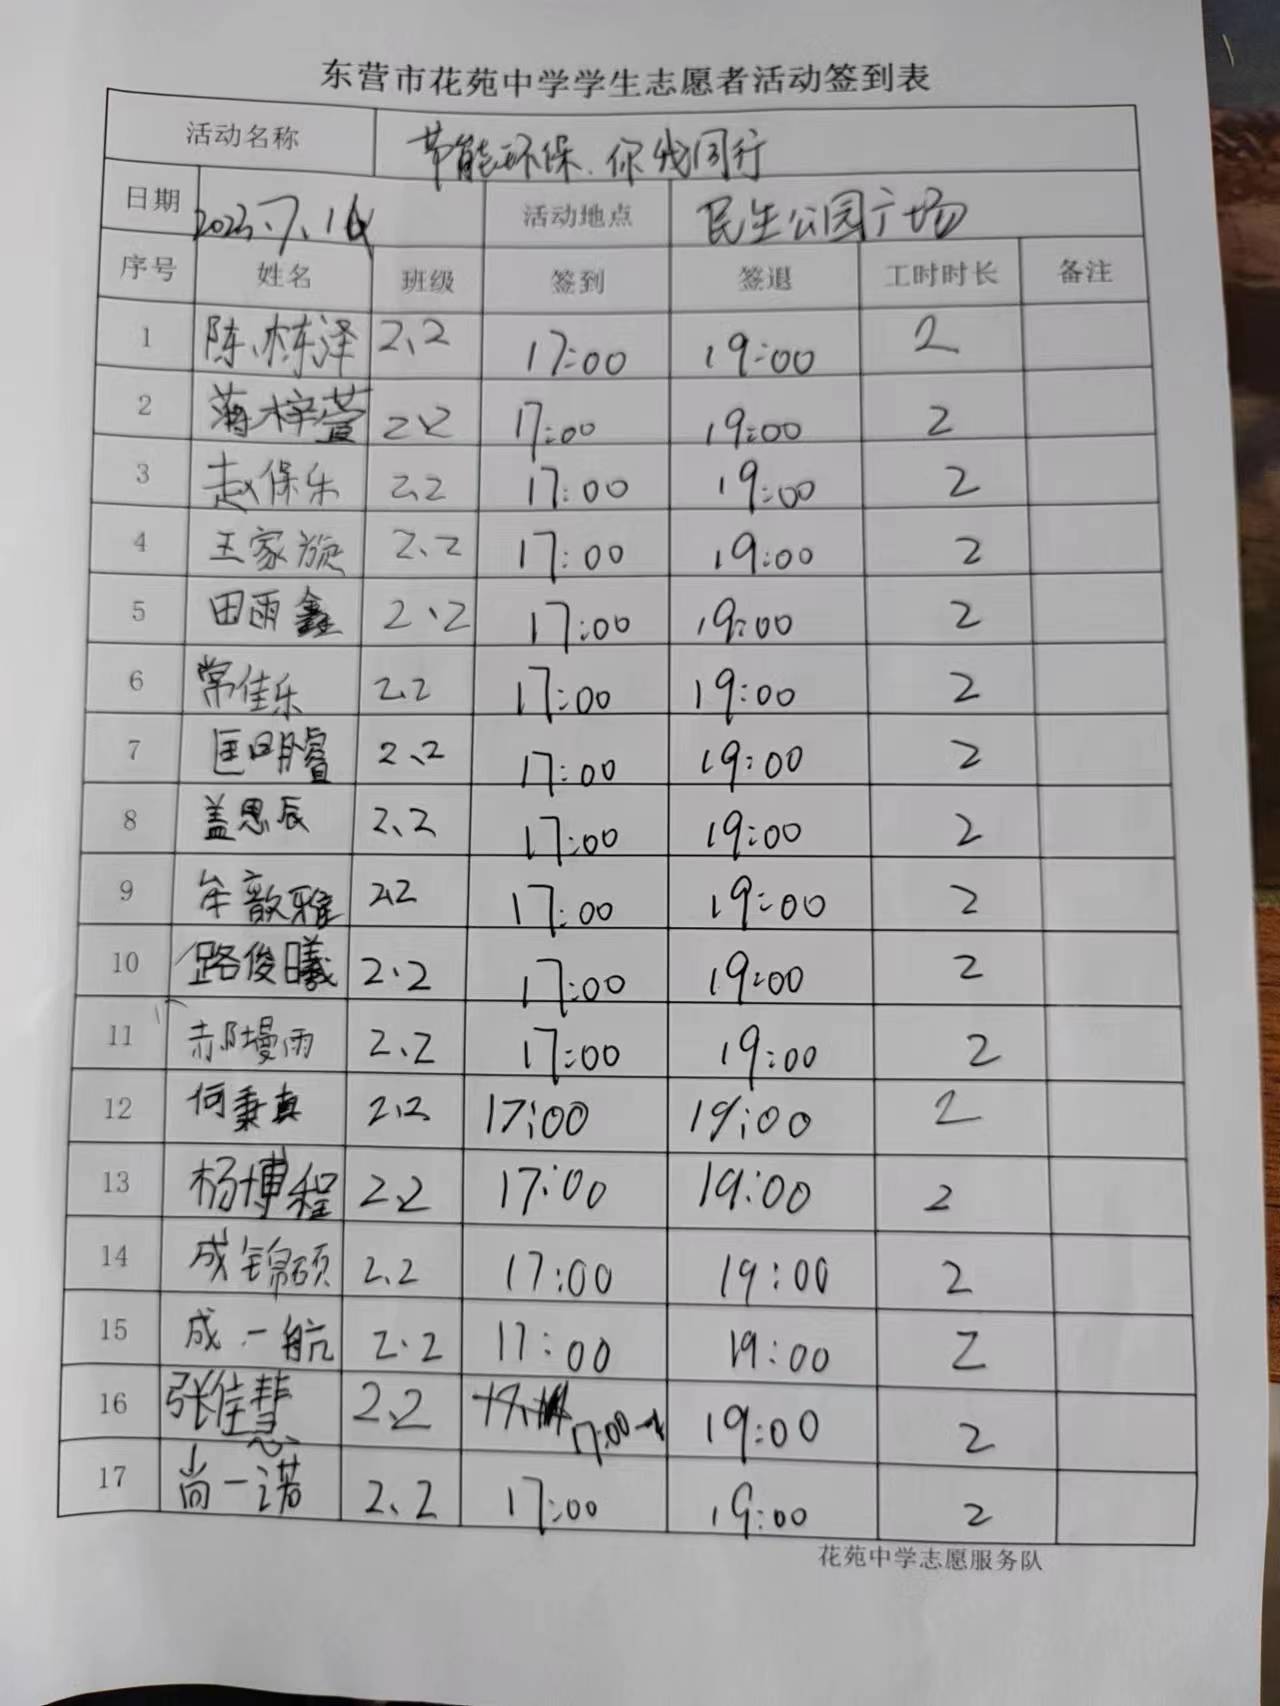 东营市花苑中学学生志愿者活动签到表
活动名称 节能环保、你我同行
日期 2023.7.14 活动地点 民生公园广场
序号 姓名 班级 签到 签退 工时时长 备注
1 陈栋泽 2、2 17:00 19:00 2
2 蒋梓萱 2、2 17:00 19:00 2
3 赵保乐 2.2 17:00 19:00 2
4 王家旋 2、2 17:00 19:00 2
5 田雨鑫 2、2 17:00 19:00 2
6 常佳乐 2.2 17:00 19:00 2
7 匡明睿 2、2 17:00 19:00 2
8 盖思辰 2、2 17:00 19:00 2
9 牟歆雅 2.2 17:00 19:00 2
10 路俊曦 2、2 17:00 19:00 2
11 郝墁雨 2、2 17:00 19:00 2
12 何秉真 2.2 17:00 19:00 2
13 杨博程 2.2 17:00 19:00 2
14 成锦硕 2.2 17:00 19:00 2
15 成一航 2、2 17:00 19:00 2
16 张佳慧 2.2 17:00 19:00 2
17 尚一诺 2、2 17:00 19:00 2
花苑中学志愿服务队